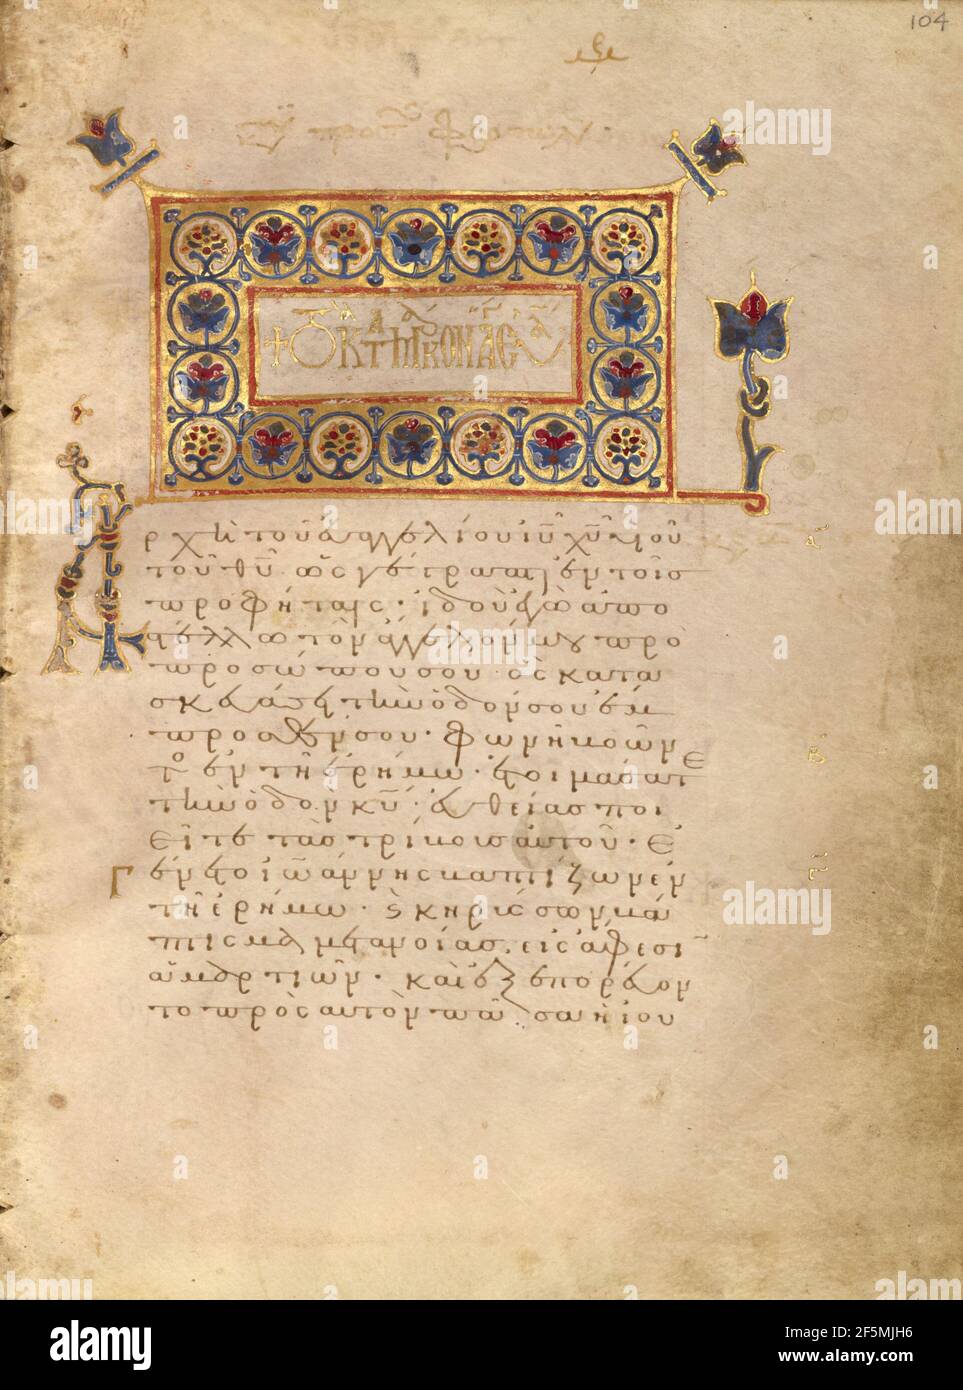 104
ρχὴ τοῦ εὐαγγελίου ἰῡ χῡ υἱοῦ
τοῦ θῡ. ὡς γέγραπται ἐν τοῖς
προφήταις· ἰδοὺ ἐγὼ ἀπο
στέλλω τὸν ἄγγελόν μου πρὸ
προσώπου σου· ὃς κατα
σκευάσει τὴν ὁδόν σου ἔμ
προσθέν σου· φωνὴ βοῶν
τος ἐν τῇ ἐρήμῳ· ἑτοιμάσατε
τὴν ὁδὸν κῡ· εὐθείας ποι
εῖτε τὰς τρίβους αὐτοῦ· ἐ
Γ γένετο ἰωάννης βαπτίζων ἐν
τῇ ἐρήμῳ· κηρύσσων βά
πτισμα μετανοίας εἰς ἄφεσιν
ἁμαρτιῶν· καὶ ἐξεπορεύον
το πρὸς αὐτὸν πᾶσα ἡ ἰου
alamy
Image ID: 2F5MJH6
www.alamy.com